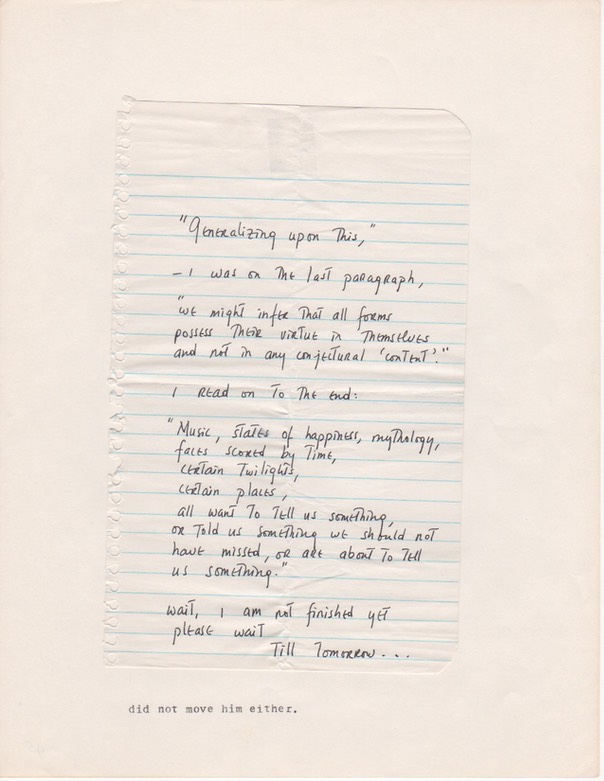 "Generalizing upon This,"
- I was on The last paragraph,
"we might infer That all forms
possess Their virtue in Themselves
and not in any conjectural 'content'."
I read on To The end:
"Music, states of happiness, mythology,
faces scored by Time,
certain Twilights,
certain places,
all want To Tell us something,
or Told us something we should not
have missed, or are about To Tell
us something."
wait, I am not finished yet
please wait
Till Tomorrow...
did not move him either.